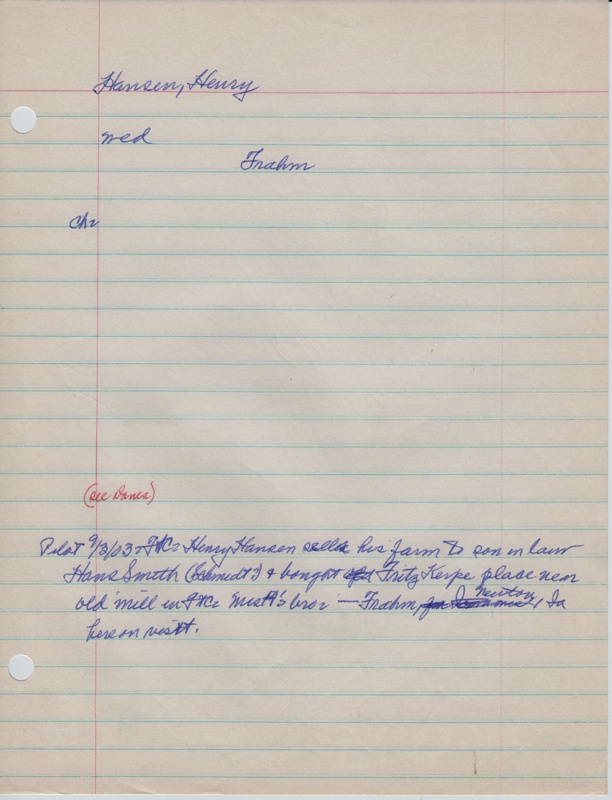 Hansen, Henry
wed
Frahm
Ch:
(see Danes)
Pilot 9/3/03 - FtC: Henry Hansen sells his farm to son in law
Hans Smith (Schmidt?) & bought Fritz Kerpe place near
old mill in FtC: bro: — Frahm, Newton, Ia
here on visit.